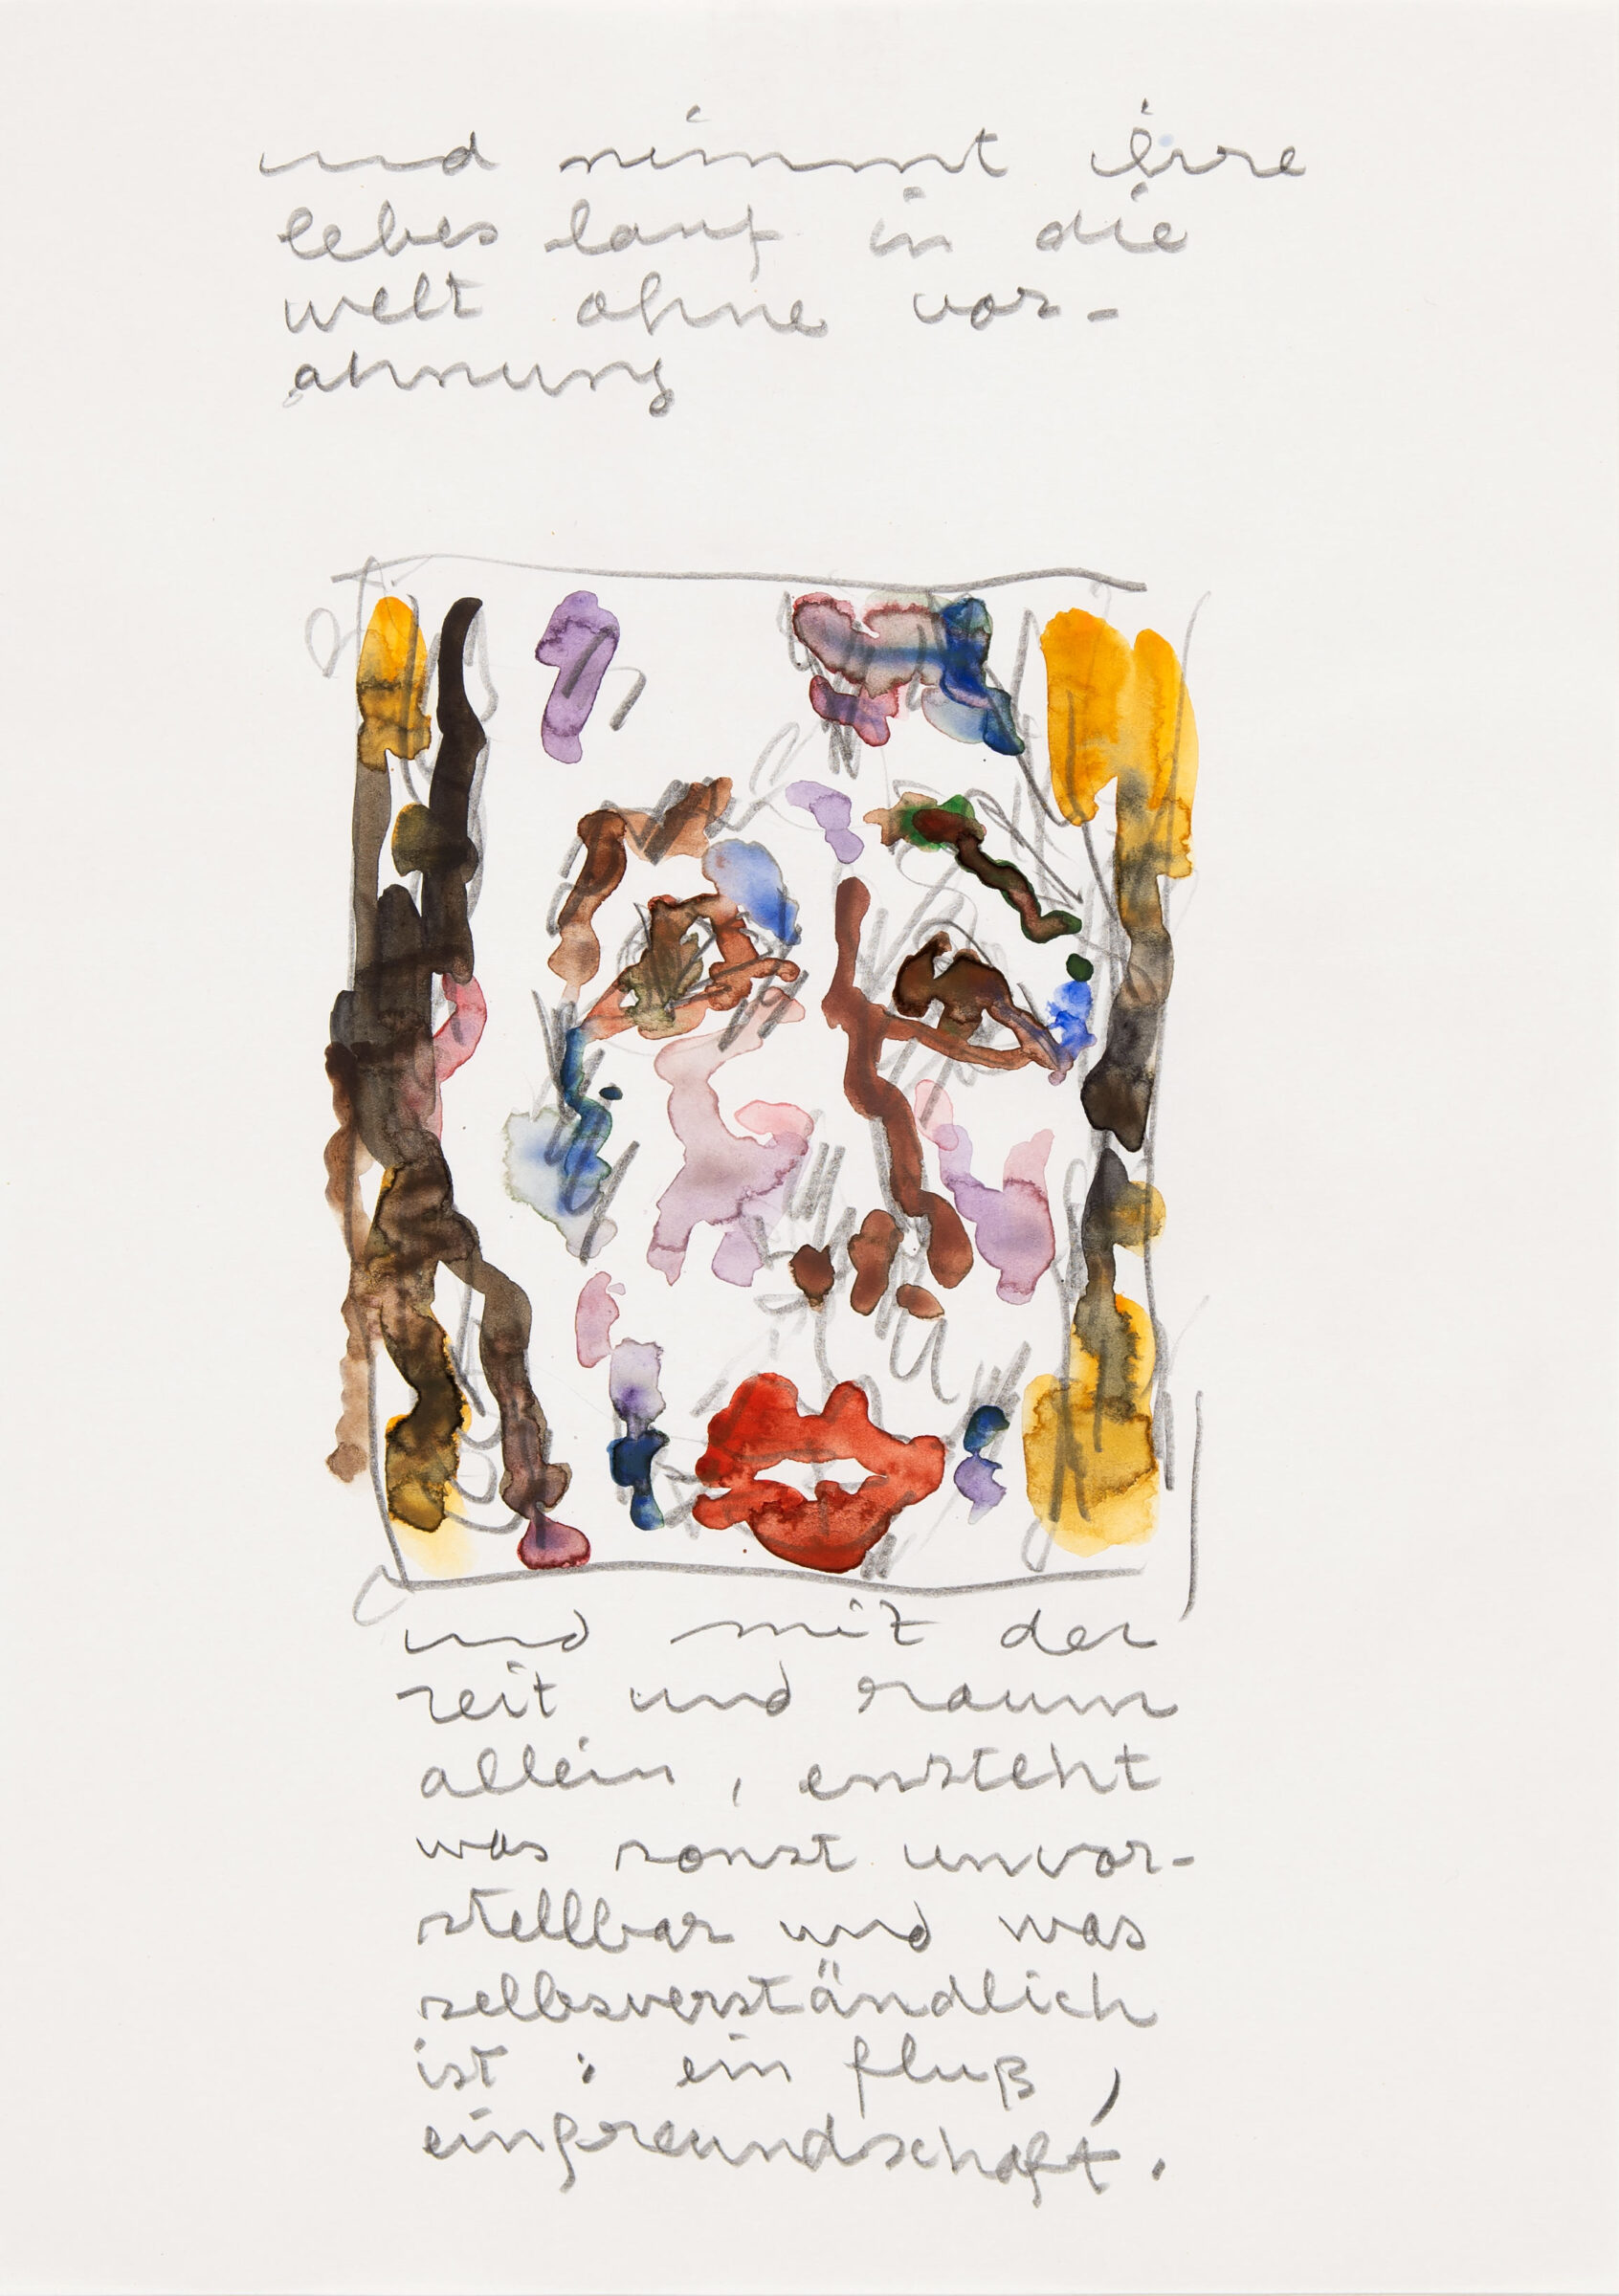 und nimmt ihre
lebes lauf in die
welt ohne vor-
ahnung
und mit der
zeit und raum
allein, ensteht
was sonst unvor-
stellbar und was
selbsverständlich
ist : ein fluß,
einfreundschaft.